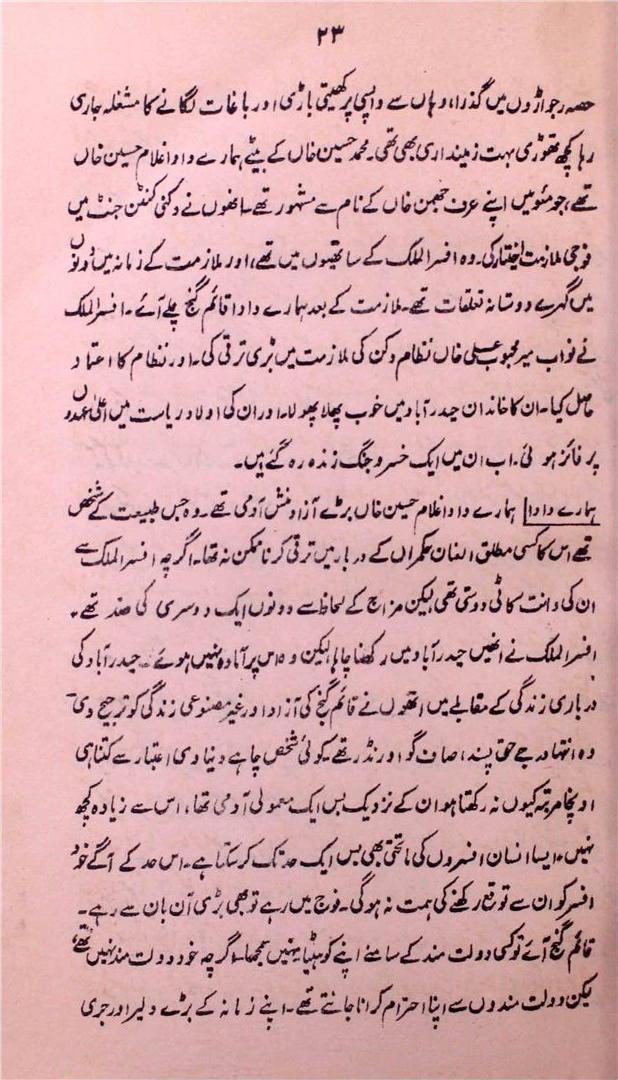 ۲۳
حصہ رجواڑوں میں گذرا، وہاں سے واپسی پر کھیتی باڑی اور باغات لگانے کا مشغلہ جاری
رہا کچھ تھوڑی بہت زمینداری بھی تھی۔ محمد حسین خاں کے بیٹے ہمارے دادا غلام حسین خاں
تھے، جو مئو میں اپنے عرف جھمن خاں کے نام سے مشہور تھے۔ انھوں نے دکنی کنٹن جنٹ میں
فوجی ملازمت اختیار کی۔ وہ افسر الملک کے ساتھیوں میں تھے، اور ملازمت کے زمانہ میں دونوں
میں گہرے دوستانہ تعلقات تھے۔ ملازمت کے بعد ہمارے دادا قائم گنج چلے آئے۔ افسر الملک
نے نواب میر محبوب علی خاں نظام دکن کی ملازمت میں بڑی ترقی کی۔ اور نظام کا اعتماد
حاصل کیا۔ ان کا خاندان حیدرآباد میں خوب پھلا پھولا۔ اور ان کی اولاد ریاست میں اعلیٰ عہدوں
پر فائز ہوئی۔ اب ان میں ایک خسرو جنگ زندہ رہ گئے ہیں۔
ہمارے دادا| ہمارے دادا غلام حسین خاں بڑے آزاد منش آدمی تھے۔ وہ جس طبیعت کے شخص
تھے اس کا کسی مطلق العنان حکمراں کے دربار میں ترقی کرنا ممکن نہ تھا۔ اگرچہ افسر الملک سے
ان کی دانت کاٹی دوستی تھی لیکن مزاج کے لحاظ سے دونوں ایک دوسری کی ضد تھے۔
افسر الملک نے انھیں حیدرآباد میں رکھنا چاہا لیکن وہ اس پر آمادہ نہیں ہوئے۔ حیدرآباد کی
درباری زندگی کے مقابلے میں انھوں نے قائم گنج کی آزاد اور غیر مصنوعی زندگی کو ترجیح دی۔
وہ انتہا درجے حق پسند، صاف گو اور نڈر تھے۔ کوئی شخص چاہے دنیاوی اعتبار سے کتنا ہی
اونچا مرتبہ کیوں نہ رکھتا ہو ان کے نزدیک بس ایک معمولی آدمی تھا، اس سے زیادہ کچھ
نہیں۔ ایسا انسان افسروں کی ماتحتی بھی بس ایک حد تک کر سکتا ہے۔ اس حد کے آگے خود
افسر کو ان سے توقع رکھنے کی ہمت نہ ہوگی۔ فوج میں رہے تو بھی بڑی آن بان سے رہے۔
قائم گنج آئے تو کسی دولت مند کے سامنے اپنے کو ہیٹا نہیں سمجھا۔ اگرچہ خود دولت مند نہیں تھے،
لیکن دولت مندوں سے اپنا احترام کرانا جانتے تھے۔ اپنے زمانہ کے بڑے دلیر اور جری